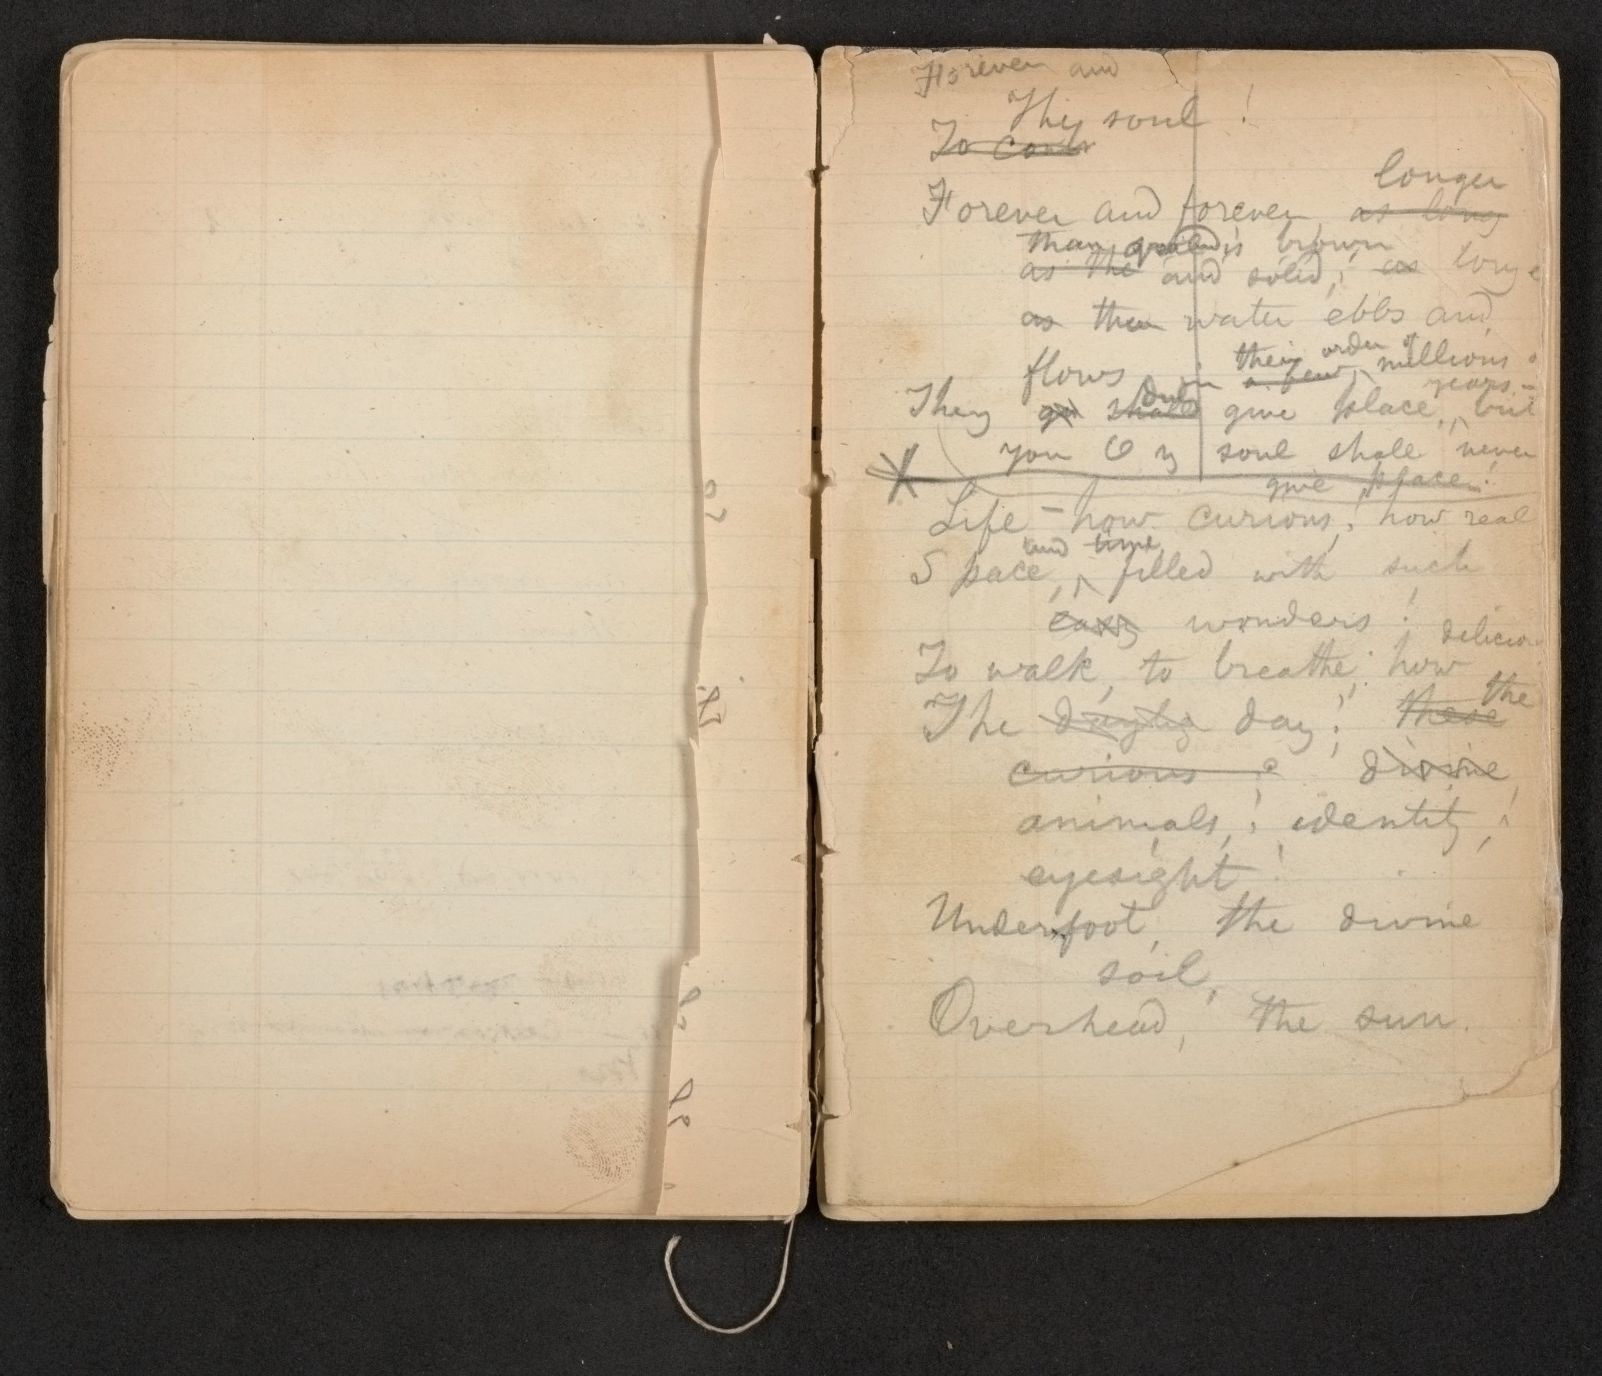 Forever and
Thy soul!
To
Forever and forever longer as long
than soil is brown
as the and solid, as long
as the water ebbs and
flows in their order of a few millions of years—
They shall give place, but
you O my soul shall never
give place!
Life — how curious! how real
Space, and time, filled with such
easy wonders!
To walk, to breathe, how delicious
The day! these the
curious divine
animals! identity!
eyesight!
Underfoot, the divine
soil,
Overhead, the sun.